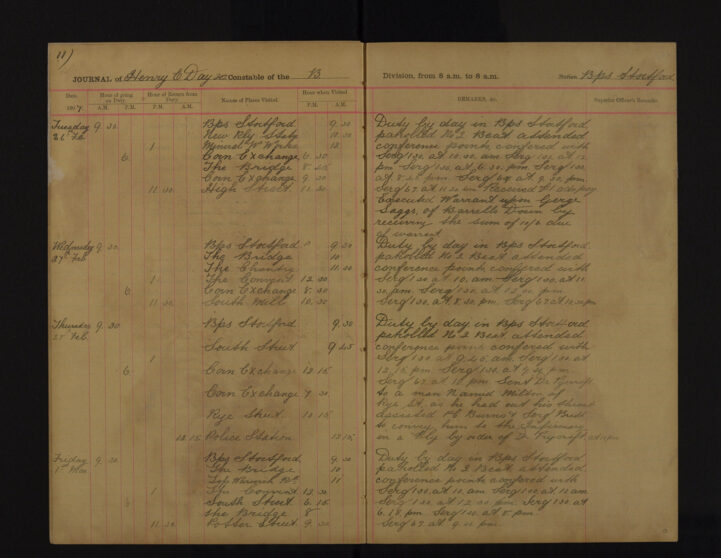 11)
JOURNAL of Henry C Day Constable of the B Division, from 8 a.m. to 8 a.m. Station Bps Stortford
Date 1907 Hour of going on Duty A.M. P.M. Hour of Return from Duty A.M. P.M. Names of Places Visited Hour when Visited P.M. A.M. REMARKS, &c. Superior Officer's Remarks
Tuesday 9 30 Bps Stortford 9 30 Duty by day in Bps Stortford
26 Feb New Rly 10 30 patrolled No 2 Beat attended
1 Mineral W Works 12 conference points confered with
6 Corn Exchange 6 30 Serg 130 at 10.30 am Serg 130 at 12
The Bridge 8 pm Serg 130 at 6.30 pm Serg 130
Corn Exchange 9 30 at Serg 69 at 9.30 pm
11 30 High Street 11 30 Serg 69 at 11.30 pm Received
Executed Warrant upon
of by
receiving the sum of due
of warrant
Wednesday 9 30 Bps Stortford 9 30 Duty by day in Bps Stortford
27 Feb The Bridge 10 patrolled No 2 Beat attended
The 11 30 conference points confered with
1 The Convent 12 30 Serg 130 at 10 am Serg 130 at 11
6 Corn Exchange 8 30 30 am Serg 130 at 12.30 pm
11 30 South Mill 10 30 Serg 130 at 8.30 pm Serg 69 at 10.30 pm
Thursday 9 30 Bps Stortford 9 30 Duty by day in Bps Stortford
28 Feb patrolled No 2 Beat attended
South Street 9 45 conference points confered with
1 Serg 130 at 9.45 am Serg 130 at
6 Corn Exchange 12 15 12.15 pm Serg 130 at 7.30 pm
Serg 69 at 10 pm Sent Dr
Corn Exchange 7 30 to a man Named of
Rye St as he had cut his throat
Rye Street 10 15 assisted PC Burns & Serg
to convey him to the Infirmary
12 15 Police Station 12 15 in a Fly by order of Dr
Friday 9 30 Bps Stortford 9 30 Duty by day in Bps Stortford
1st Mar The Bridge 10 patrolled No 2 Beat attended
11 conference points confered with
1 The Convent 12 30 Serg 130 at 10 am Serg 130 at 11 am
6 South Street 6 15 Serg 130 at 12.30 pm Serg 130 at
The Bridge 8 Serg 130 at 8 pm
11 30 Potter Street 9 30 Serg 69 at 9.30 pm